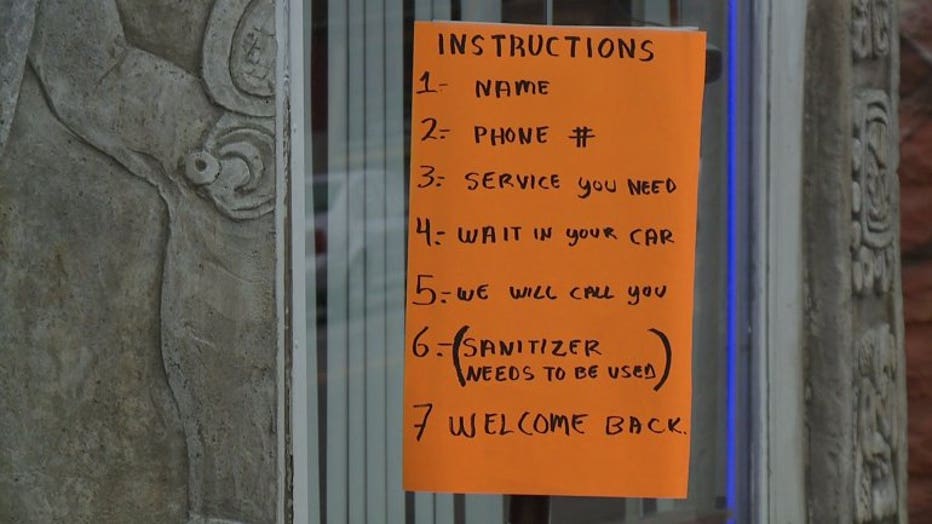 INSTRUCTIONS
1- NAME
2- PHONE #
3- SERVICE YOU NEED
4- WAIT IN YOUR CAR
5- WE WILL CALL YOU
6- (SANITIZER
NEEDS TO BE USED)
7 WELCOME BACK.